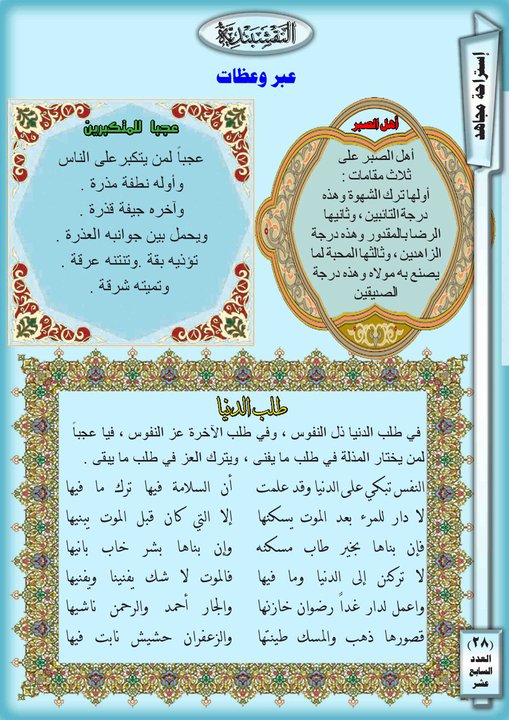 النقشبندية
إستراحة مجاهد
عبر وعظات
أهل الصبر
أهل الصبر على
ثلاث مقامات :
أولها ترك الشهوة وهذه
درجة التائبين ، وثانيها
الرضا بالمقدور وهذه درجة
الزاهدين ، وثالثها المحبة لما
يصنع به مولاه وهذه درجة
الصديقين
عجبا للمتكبرين
عجباً لمن يتكبر على الناس
وأوله نطفة مذرة .
وآخره جيفة قذرة .
ويحمل بين جوانبه العذرة .
تؤذيه بقة .وتنتنه عرقة .
وتميته شرقة .
طلب الدنيا
في طلب الدنيا ذل النفوس ، وفي طلب الآخرة عز النفوس ، فيا عجباً
لمن يختار المذلة في طلب ما يفنى ، ويترك العز في طلب ما يبقى .
النفس تبكي على الدنيا وقد علمت أن السلامة فيها ترك ما فيها
لا دار للمرء بعد الموت يسكنها إلا التي كان قبل الموت يبنيها
فإن بناها بخير طاب مسكنه وإن بناها بشر خاب بانيها
لا تركنن إلى الدنيا وما فيها فالموت لا شك يفنينا ويفنيها
واعمل لدار غداً رضوان خازنها والجار أحمد والرحمن ناشيها
قصورها ذهب والمسك طينتها والزعفران حشيش نابت فيها
(٢٨)
العدد
السابع
عشر